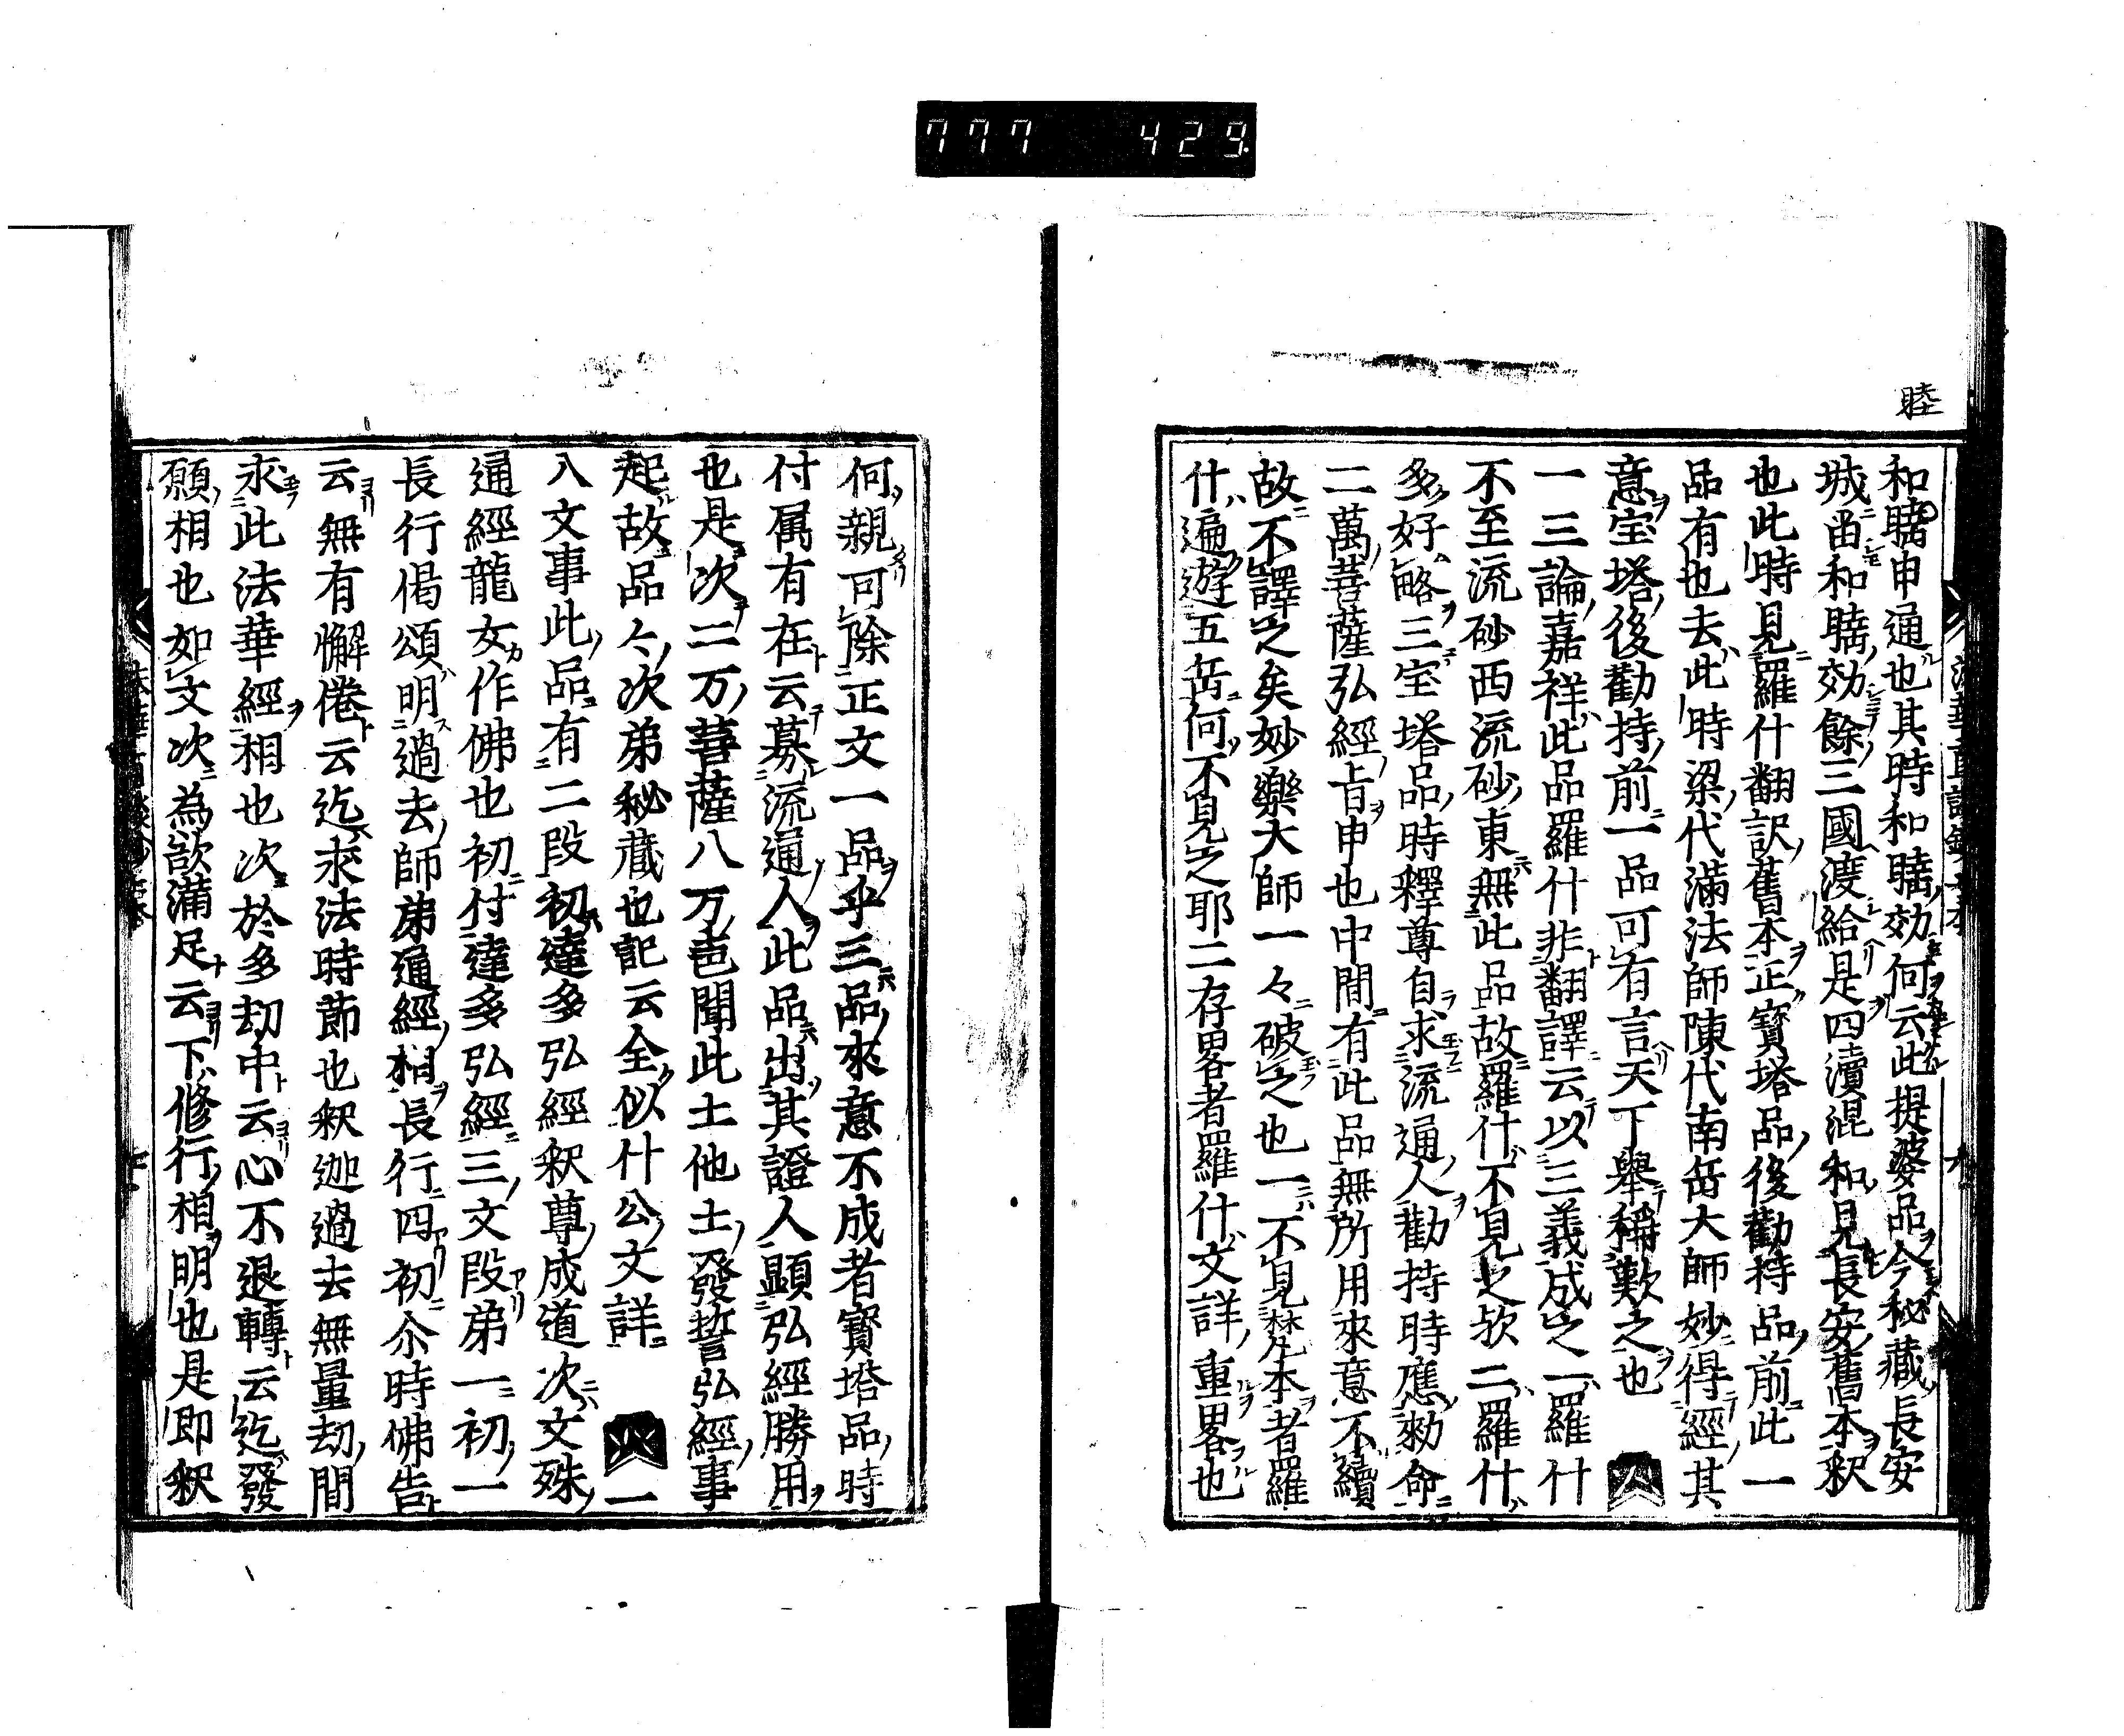 777 429
睦
和瞱申通也其時和瞱効何云此提婆品今秘藏長安
城畄和瞱効餘三國渡給是四瀆混和見長安舊本釈
也此時見羅什翻訳舊本正寶塔品後勸持品前此一
品有也去此時梁代滿法師陳代南岳大師妙得經其
意宝塔後勸持前一品可有言天下舉稱歎之也
一三論嘉祥此品羅什非翻譯云以三義成之一羅什
不至流砂西流砂東無此品故羅什不見之欤二羅什
多好略三宝塔品時釋尊自求流通人勸持時應勅命
二萬菩薩弘經旨申也中間有此品無所用來意不續
故不譯之矣妙樂大師一々破之也一不見梵本者羅
什遍遊五岳何不見之耶二存畧者羅什文詳重畧也
何親可除正文一品乎三品來意不成者寶塔品時
付属有在云募流通人此品出其證人顕弘經勝用
也是次二万菩薩八万声聞此土他土發誓弘經事
起故品々次弟秘藏也記云全似什公文詳 一
入文事此品有二段初達多弘經釈尊成道次文殊
通經龍女作佛也初付達多弘經三文段弟一初一
長行偈頌明過去師弟通經相長行四初尒時佛告
云無有懈倦云迄求法時節也釈迦過去無量劫間
求此法華經相也次於多劫中云心不退轉云迄發
願相也如文次為欲滿足云下修行相明也是即釈